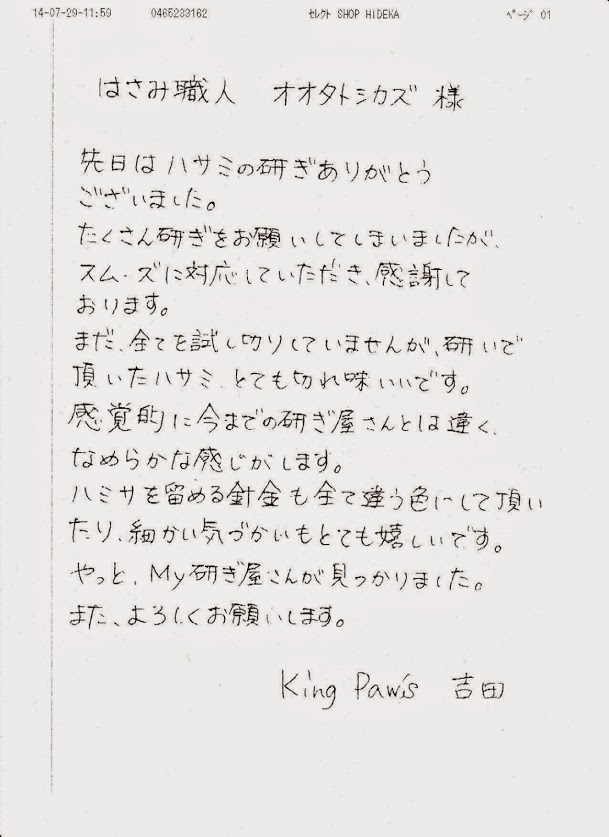 14-07-29-11:59 0465233162 セレクト SHOP HIDEKA ページ 01
はさみ職人 オオタトシカズ 様
先日はハサミの研ぎありがとう
ございました。
たくさん研ぎをお願いしてしまいましたが、
スム・ズに対応していただき、感謝して
おります。
まだ、全てを試し切りしていませんが、研いで
頂いたハサミ、とても切れ味いいです。
感覚的に今までの研ぎ屋さんとは違く、
なめらかな感じがします。
ハミサを留める針金も全て違う色にして頂い
たり、細かい気づかいもとても嬉しいです。
やっと、My研ぎ屋さんが見つかりました。
また、よろしくお願いします。
King Paw's 吉田